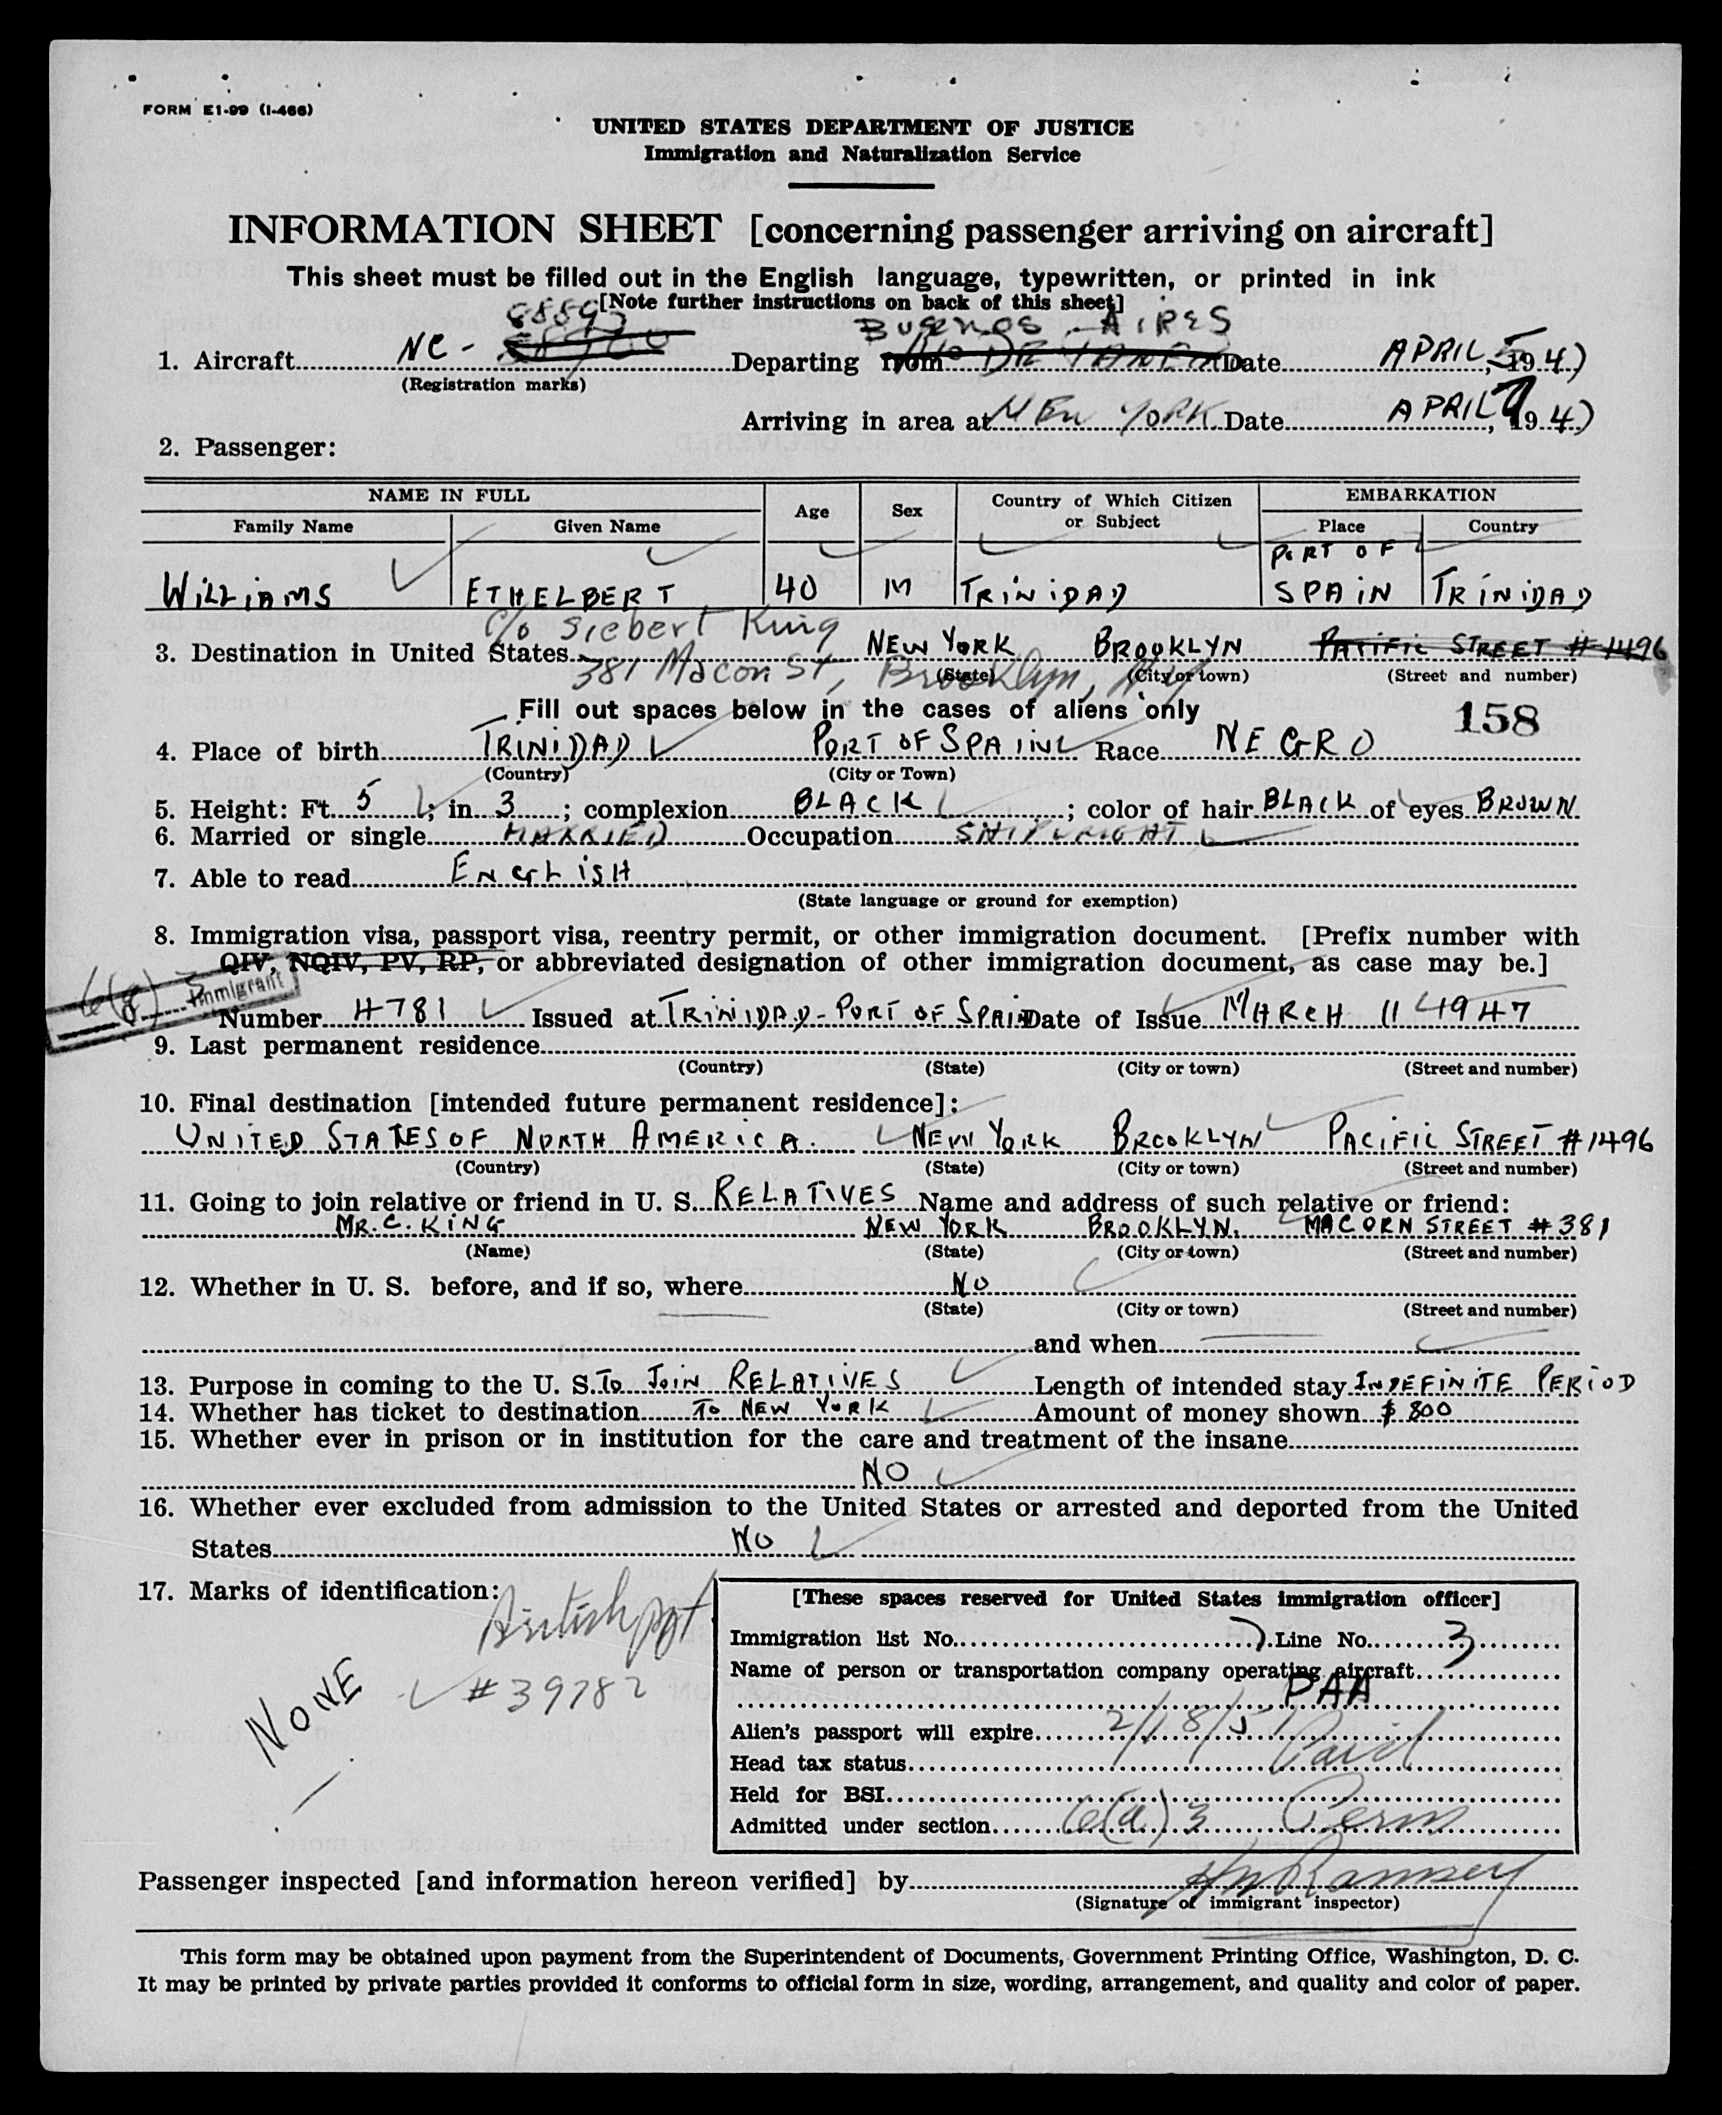 FORM E1-99 (I-466)
UNITED STATES DEPARTMENT OF JUSTICE
Immigration and Naturalization Service
INFORMATION SHEET [concerning passenger arriving on aircraft]
This sheet must be filled out in the English language, typewritten, or printed in ink
[Note further instructions on back of this sheet]
BUENOS AIRES
1. Aircraft NC- Departing from Date APRIL 5, 1947
(Registration marks)
Arriving in area at NEW YORK Date APRIL 7, 1947
2. Passenger:
NAME IN FULL Age Sex Country of Which Citizen or Subject EMBARKATION
Family Name Given Name Place Country
WILLIAMS ETHELBERT 40 M TRINIDAD PORT OF SPAIN TRINIDAD
c/o Siebert King
3. Destination in United States NEW YORK BROOKLYN PACIFIC STREET # 1496
381 Macon St, Brooklyn, NY
(State) (City or town) (Street and number)
Fill out spaces below in the cases of aliens only 158
4. Place of birth TRINIDAD PORT OF SPAIN Race NEGRO
(Country) (City or Town)
5. Height: Ft. 5; in. 3; complexion BLACK; color of hair BLACK of eyes BROWN
6. Married or single MARRIED Occupation SHIPWRIGHT
7. Able to read ENGLISH
(State language or ground for exemption)
8. Immigration visa, passport visa, reentry permit, or other immigration document. [Prefix number with
QIV, NQIV, PV, RP, or abbreviated designation of other immigration document, as case may be.]
Immigrant
Number 4781 Issued at TRINIDAD-PORT OF SPAIN Date of Issue MARCH 11 1947
9. Last permanent residence
(Country) (State) (City or town) (Street and number)
10. Final destination [intended future permanent residence]:
UNITED STATES OF NORTH AMERICA. NEW YORK BROOKLYN PACIFIC STREET #1496
(Country) (State) (City or town) (Street and number)
11. Going to join relative or friend in U. S. RELATIVES Name and address of such relative or friend:
MR. C. KING NEW YORK BROOKLYN. MACORN STREET #381
(Name) (State) (City or town) (Street and number)
12. Whether in U. S. before, and if so, where NO
(State) (City or town) (Street and number)
and when
13. Purpose in coming to the U. S. TO JOIN RELATIVES Length of intended stay INDEFINITE PERIOD
14. Whether has ticket to destination TO NEW YORK Amount of money shown $ 800
15. Whether ever in prison or in institution for the care and treatment of the insane
NO
16. Whether ever excluded from admission to the United States or arrested and deported from the United
States NO
17. Marks of identification:
British ppt
# 39782
NONE
[These spaces reserved for United States immigration officer]
Immigration list No. 7 Line No. 3
Name of person or transportation company operating aircraft
PAA
Alien's passport will expire 2/18/51
Head tax status Paid
Held for BSI
Admitted under section 6(a)3 Perm
Passenger inspected [and information hereon verified] by Ramsey
(Signature of immigrant inspector)
This form may be obtained upon payment from the Superintendent of Documents, Government Printing Office, Washington, D. C.
It may be printed by private parties provided it conforms to official form in size, wording, arrangement, and quality and color of paper.